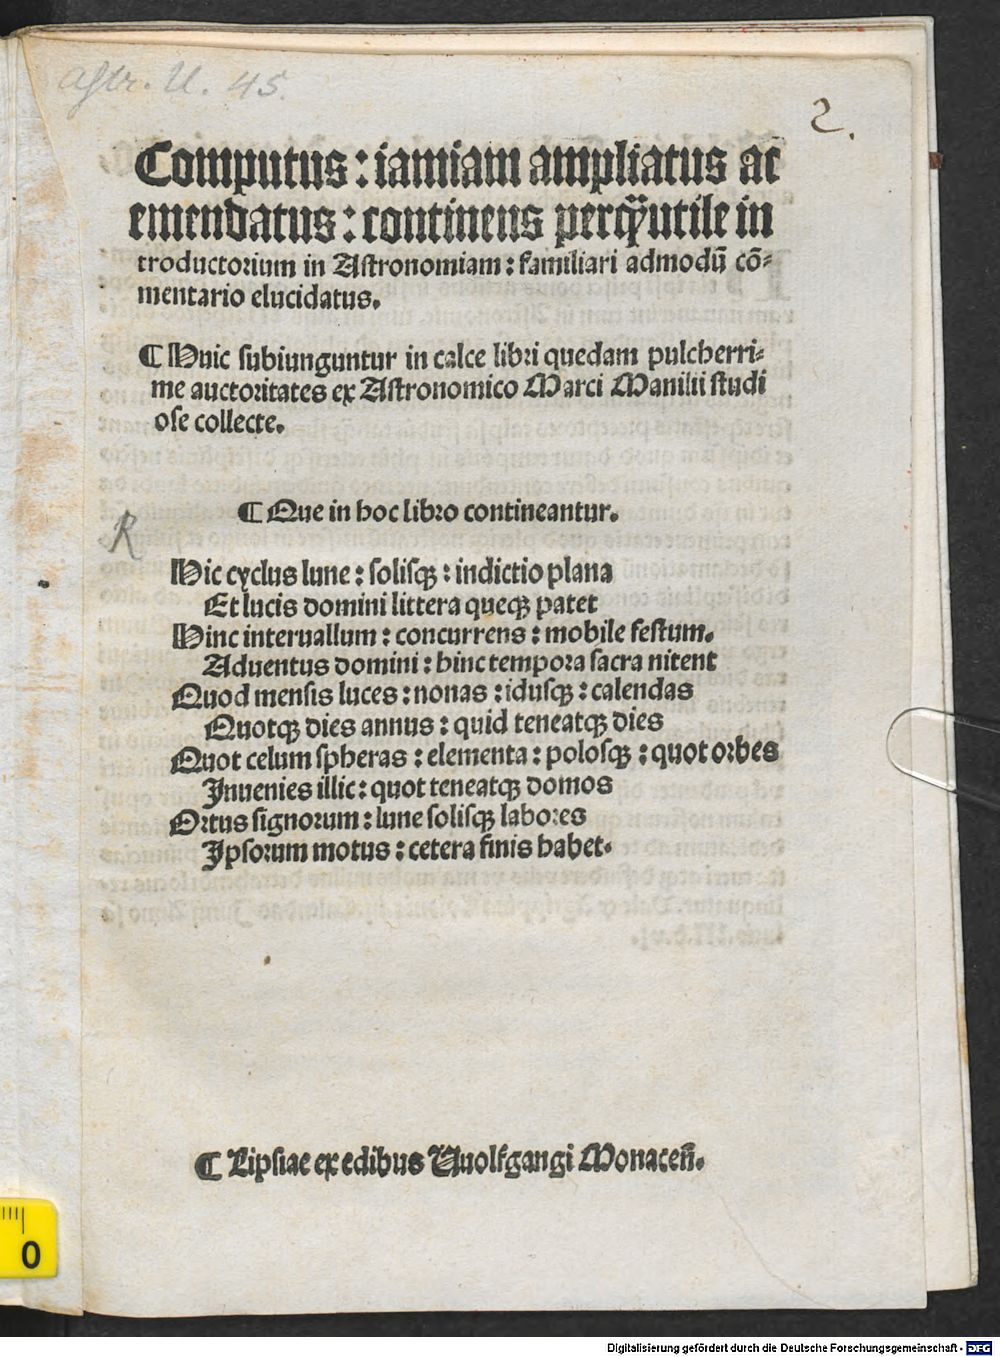 astr. U. 45.
2.
Computus : iamiam ampliatus ac
emendatus : continens perqꝫutile in
troductorium in Astronomiam : familiari admodū cō-
mentario elucidatus.
¶ Huic subiunguntur in calce libri quedam pulcherri-
me auctoritates ex Astronomico Marci Manilii studi
ose collecte.
¶ Que in hoc libro contineantur.
R
Hic cyclus lune : solisqꝫ : indictio plana
Et lucis domini littera queqꝫ patet
Hinc interuallum : concurrens : mobile festum.
Aduentus domini : hinc tempora sacra nitent
Quod mensis luces : nonas : idusqꝫ : calendas
Quotqꝫ dies annus : quid teneatqꝫ dies
Quot celum spheras : elementa : polosqꝫ : quot orbes
Inuenies illic : quot teneatqꝫ domos
Ortus signorum : lune solisqꝫ labores
Ipsorum motus : cetera finis habet.
¶ Lipsiae ex edibus Vuolfgangi Monaceñ.
0
Digitalisierung gefördert durch die Deutsche Forschungsgemeinschaft - DFG